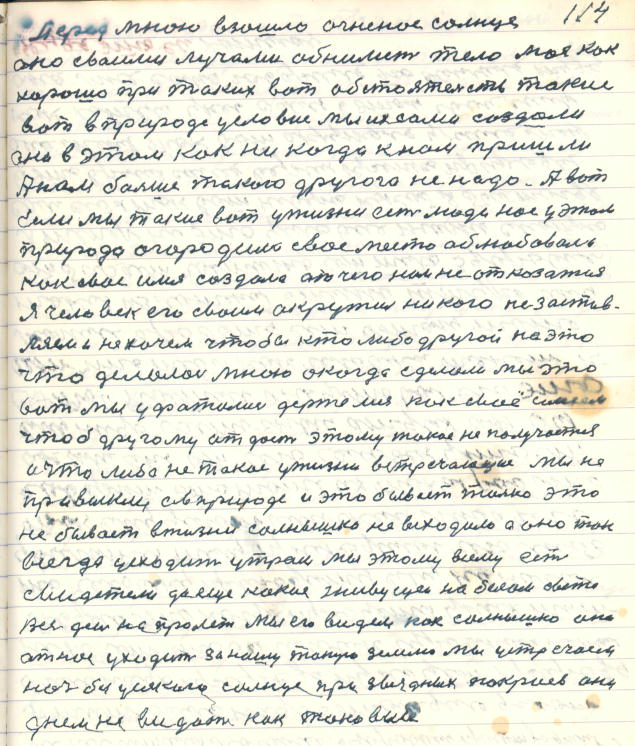 114
Перед мною взошло огненое солнце
оно своими лучами обнимает тело мое как
хорошо при таких вот обстоятельств такие
вот в природе условие мы их сами создали
она в этом как ни когда к нам пришли
А нам больше такого другого не надо. А вот
если мы такие вот у жизни есть люди нас у этом
природа огородила свое место облюбовали
как свое имя создала от чего нам не отказатся
я человек его своим окружил никого не застав-
ляем и не хочем чтобы кто либо другой на это
что делалои мною а когда сделали мы это
вот мы ухватили держался как своё
чтоб другому отдать этому такое не получается
а что либо не такое у жизни встречающие мы не
привыкли, с природе и это бывает только это
не бывает в жизни солнышко не виходило а оно так
всегда уходит утрам мы этому всему есть
свидетели да еще какое живущие на белом свете
все дни на пролет мы его видем как солнышко оно
отное уходит за нашу такую землю мы устречаем
ноч би усякого солнце при звездних покриев они
днем не видать как таковые